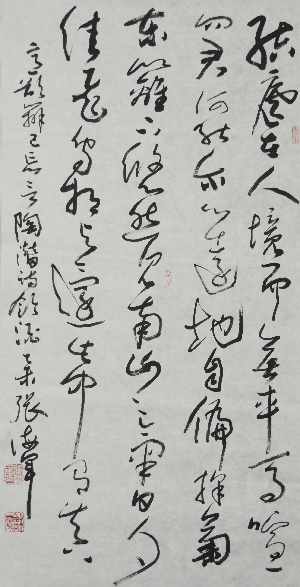 结庐在人境而无车马喧
问君何能尔心远地自偏採菊
东篱下悠然见南山山气日夕
佳飞鸟相与还此中有真
意欲辩已忘言陶潜诗饮酒 张海军